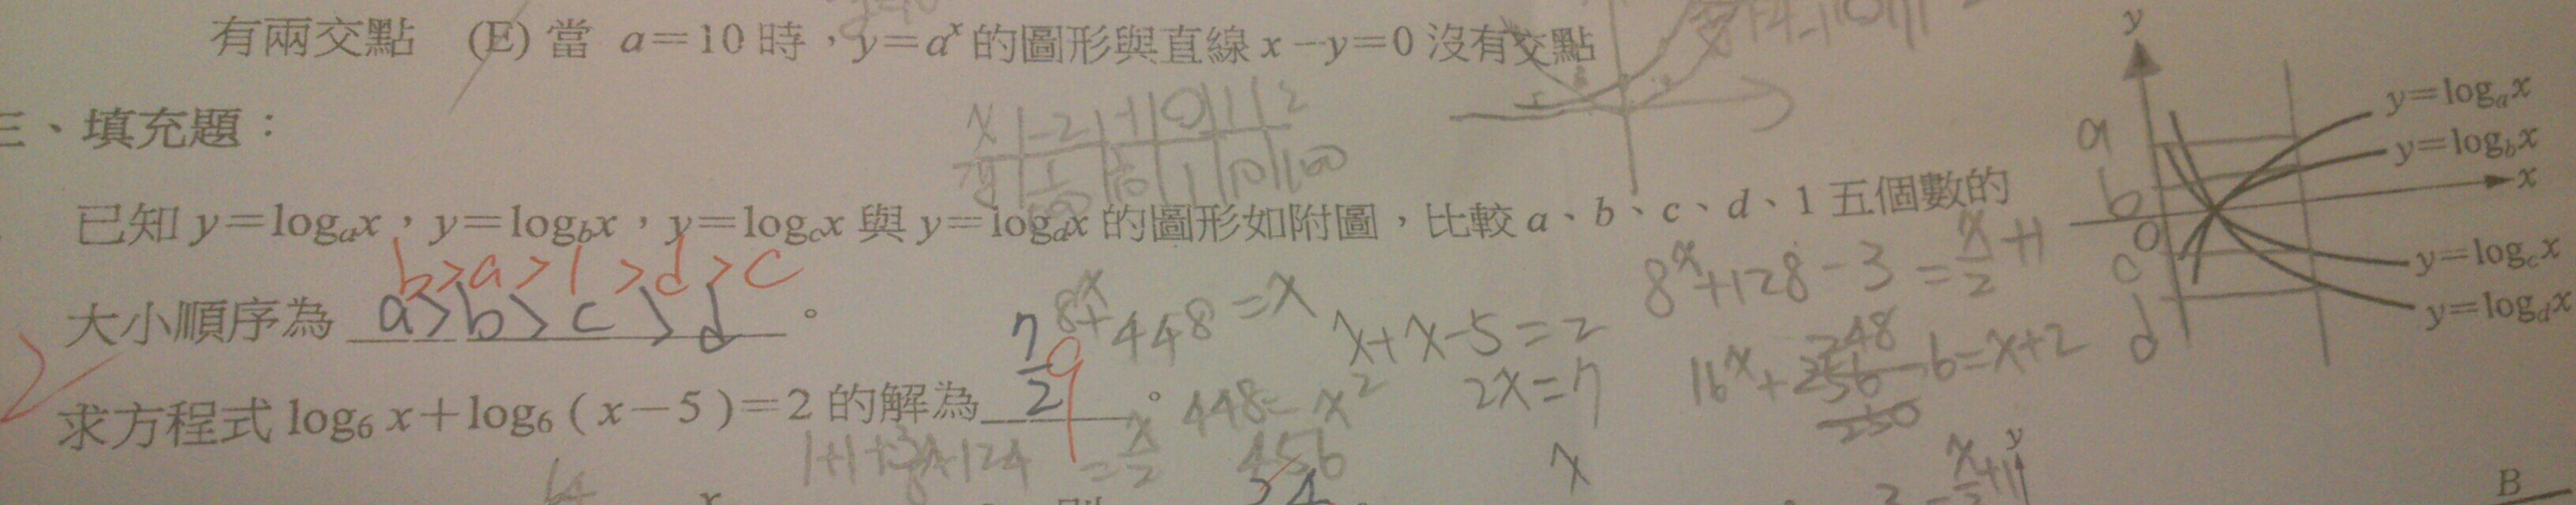 有兩交點 (E) 當 a=10 時，y=aˣ 的圖形與直線 x-y=0 沒有交點
三、填充題：
x -2 -1 0 1 2
y 1/100 1/10 1 10 100
已知 y=logₐx，y=log_b x，y=log_c x 與 y=log_d x 的圖形如附圖，比較 a、b、c、d、1 五個數的
b>a>1>d>c
大小順序為 a>b>c>d。
8ˣ+448=x
x+x-5=2
2x=7
8ˣ+128-3=x/2+1
16ˣ+256-6=x+2
248
250
求方程式 log₆ x+log₆ (x-5)=2 的解為 7/2。
9
448=x²
456
x
y
y=logₐx
y=log_b x
x
O
y=log_c x
y=log_d x
a
b
c
d
y
B